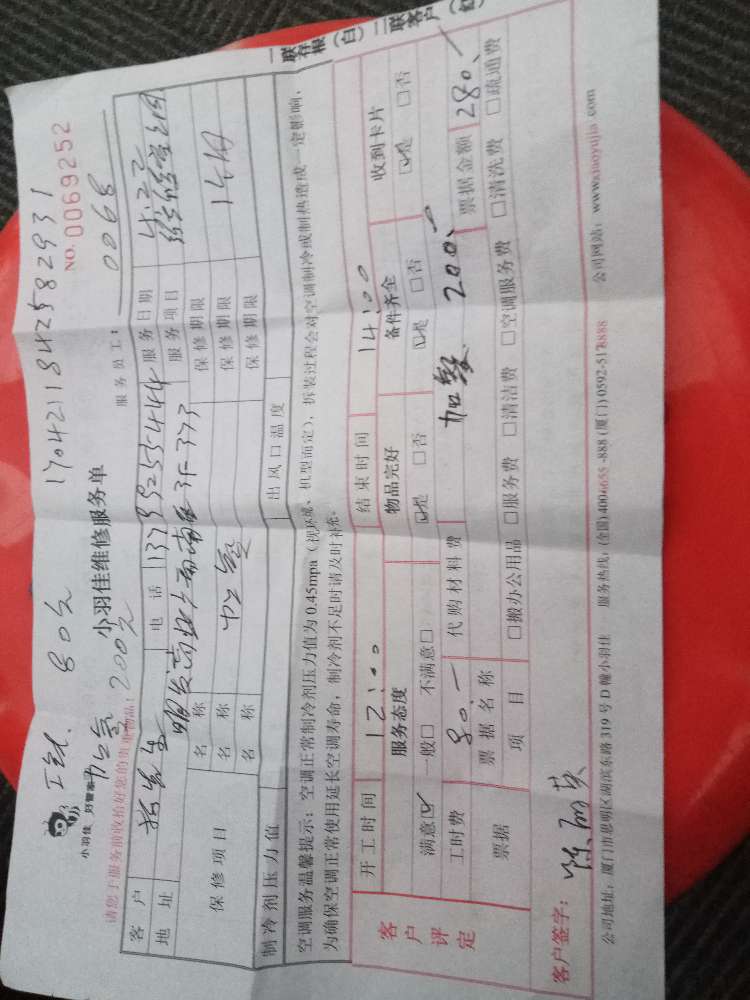 工耗 80元 1704211842582931
加氢 200元
小羽佳 好管家
小羽佳维修服务单
NO. 0069252
请您于服务前收拾好您的贵重物品：
服务员工： 0068
客户 电话 服务日期 4.22
地址 服务项目
保修项目 名称 加氢 保修期限 1个月
名称 保修期限
名称 保修期限
制冷剂压力值 出风口温度
空调服务温馨提示：空调正常制冷剂压力值为0.45mpa（视环境、机型而定），拆装过程会对空调制冷或制热造成一定影响，
为确保空调正常使用延长空调寿命，制冷剂不足时请及时补充。
客户评定
开工时间 12:00 结束时间 14:00
服务态度 物品完好 备件齐全 收到卡片
满意☑ 一般□ 不满意□ ☑是 □否 ☑是 □否 ☑是 □否
工时费 80.- 代购材料费 加氢 200.- 票据金额 280.-
票据 票据名称
项目 □搬办公用品 □服务费 □清洁费 □空调服务费 □清洗费 □疏通费
客户签字：
公司地址：厦门市思明区湖滨东路319号D幢小羽佳 服务热线：(全国)4006655-888 (厦门)0592-5178888 公司网站：www.xiaoyujia.com
一联存根（白） 二联客户（红）